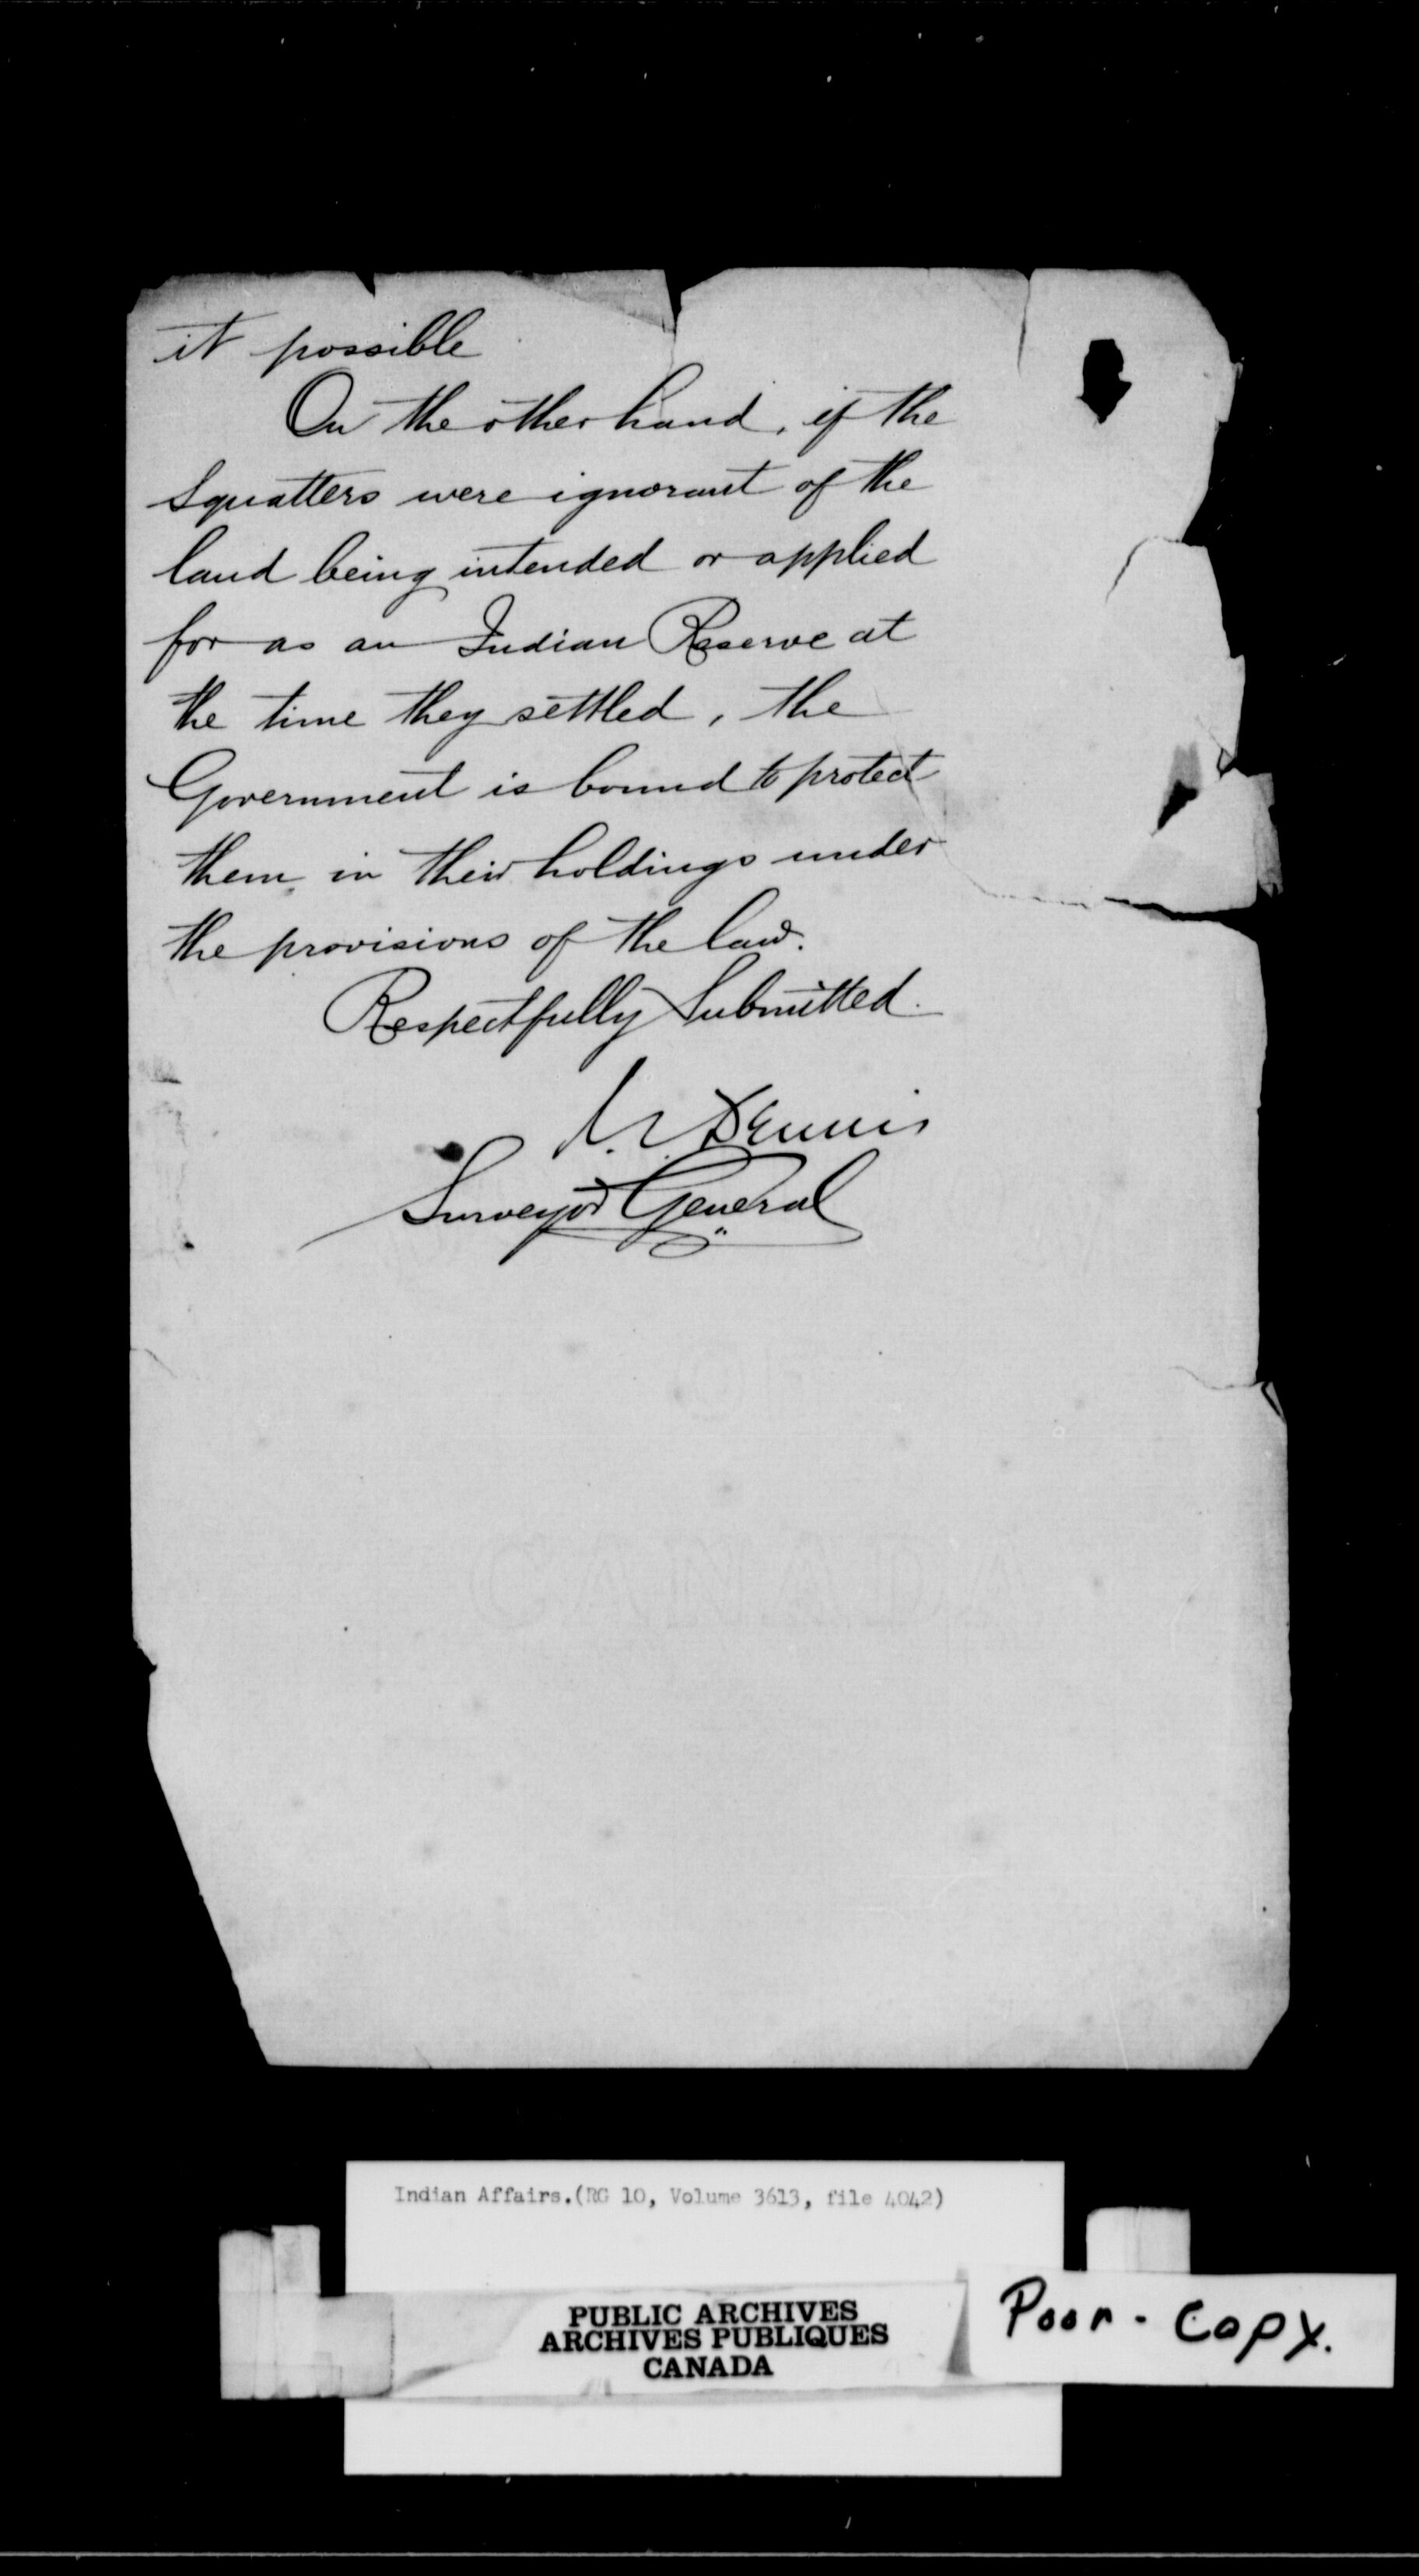 it possible
On the other hand, if the
Squatters were ignorant of the
land being intended or applied
for as an Indian Reserve at
the time they settled, the
Government is bound to protect
them in their holdings under
the provisions of the law.
Respectfully Submitted.
Dennis
Surveyor General
Indian Affairs.(RG 10, Volume 3613, file 4042)
PUBLIC ARCHIVES
ARCHIVES PUBLIQUES
CANADA
Poor - Copy.